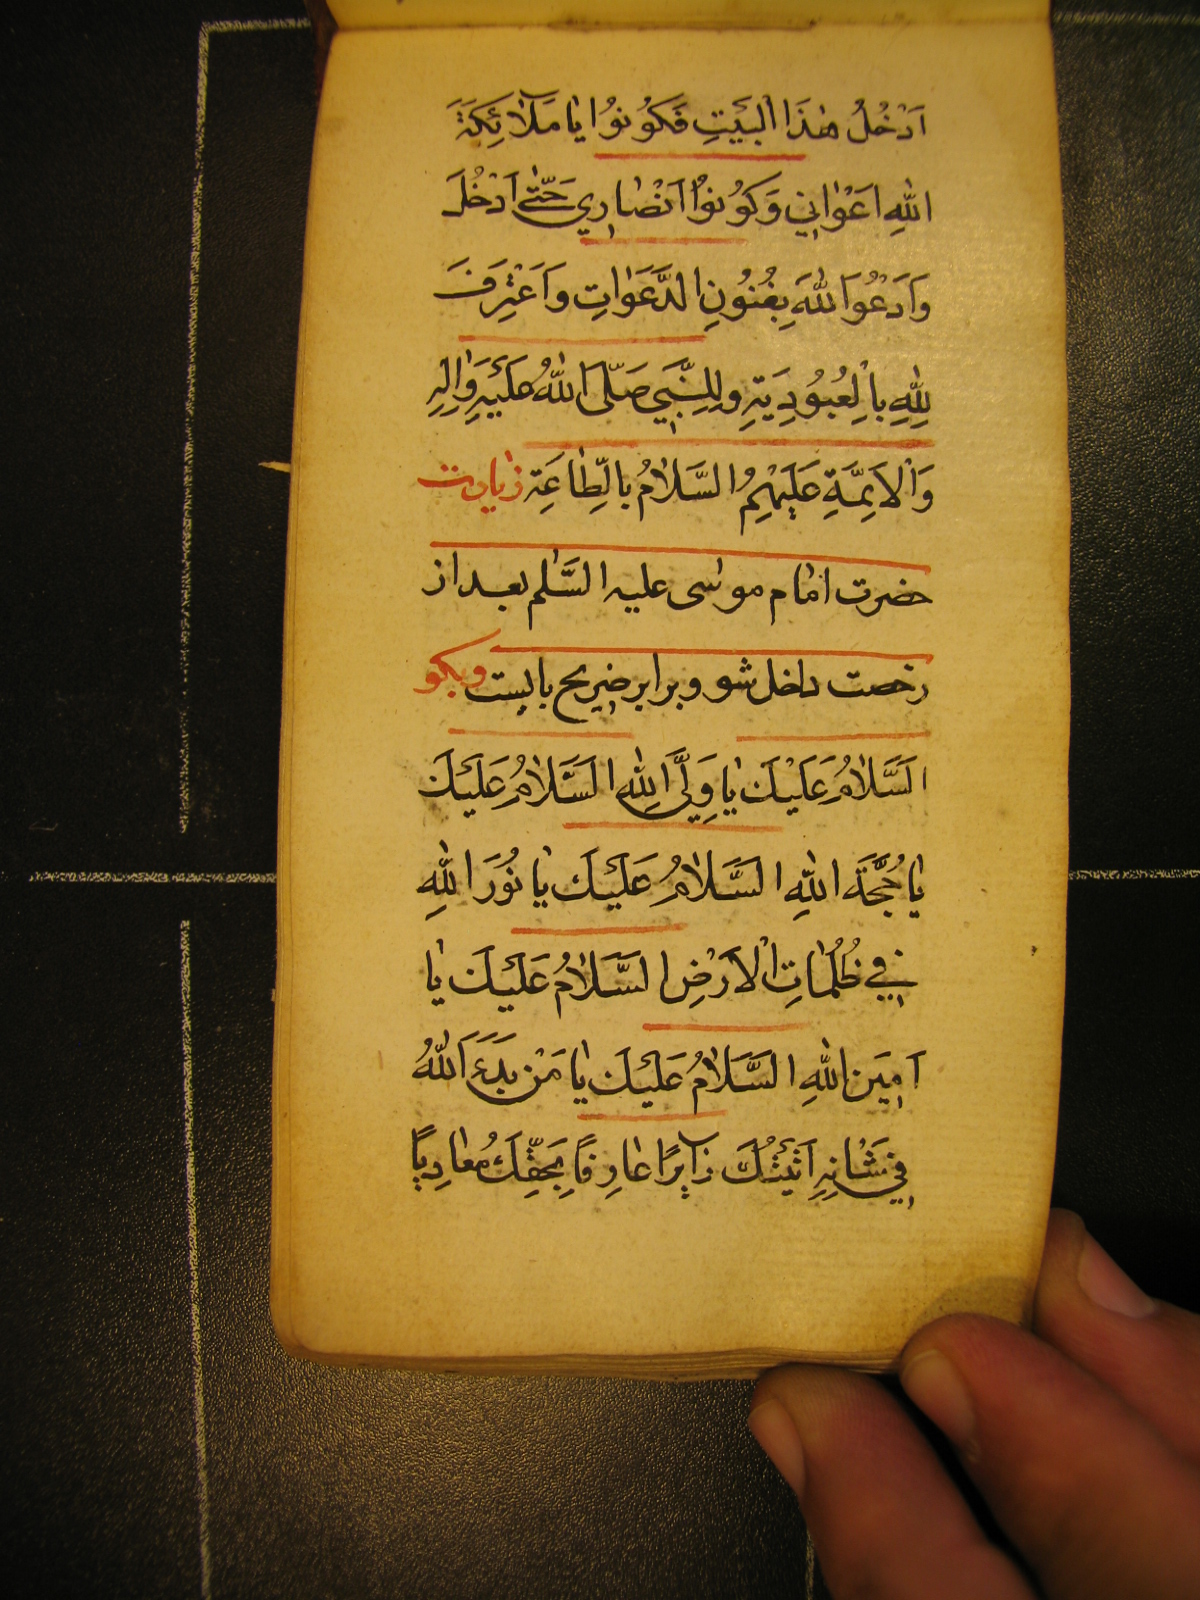 اَدْخُلُ هٰذَا الْبَيْتِ فَكُونُوا يٰا مَلٰٓائِكَةَ
اللهِ اَعْوٰانِي وَكُونُوْا اَنْصٰارِي حَتّٰى اَدْخُلَ
وَاَدْعُوَاللهَ بِفُنُونِ الدَّعَوٰاتِ وَاَعْتَرِفَ
لِلّٰهِ بِالْعُبُودِيَةِ وَلِلنَّبِيِّ صَلَّى اللهُ عَلَيْهِ وَاٰلِهِ
وَالْاَئِمَّةِ عَلَيْهِمُ السَّلٰامُ بِالطّٰاعَةِ زيارت
حضرت امام موسى عليه السَّلٰم بعد از
رخصت داخل شو و برابر ضريح بايست وبكو
اَلسَّلٰامُ عَلَيْكَ يٰا وَلِيَّ اللهِ السَّلٰامُ عَلَيْكَ
يٰا حُجَّةَ اللهِ السَّلٰامُ عَلَيْكَ يٰا نُورَ اللهِ
فِي ظُلُمٰاتِ الْاَرْضِ السَّلٰامُ عَلَيْكَ يٰا
اَمِيَن اللهِ السَّلٰامُ عَلَيْكَ يٰا مَنْ بَدَءَ اللهُ
فِي شَانِهِ اَتَيْتُكَ زٰائِرًا عٰارِفًا بِحَقِّكَ مُعٰادِيًا